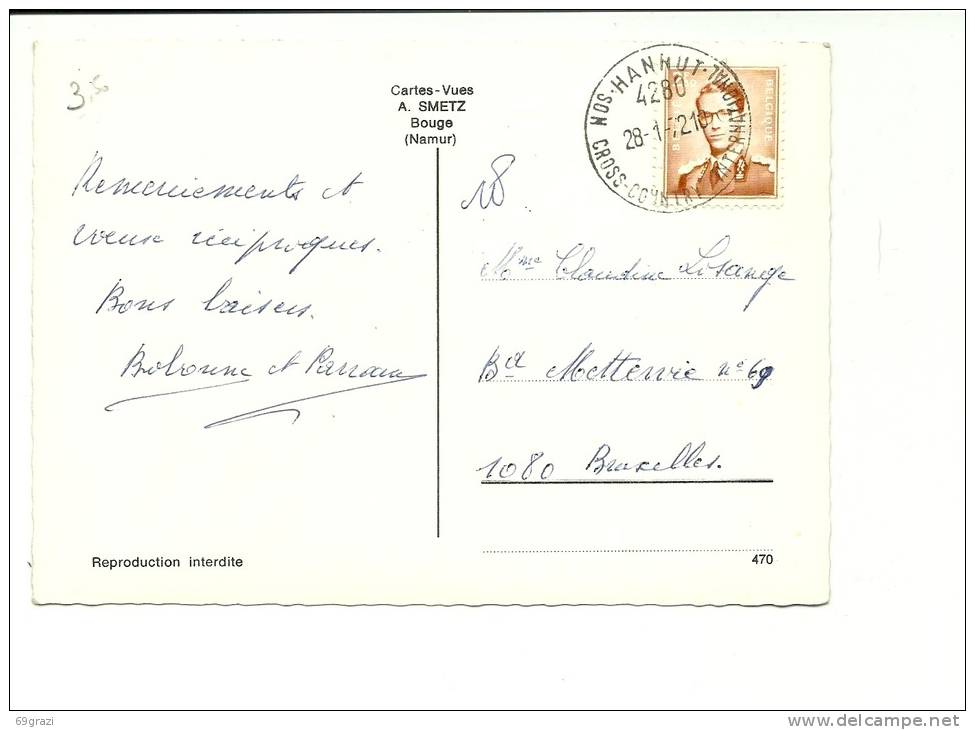 3,50
Cartes-Vues
A. SMETZ
Bouge
(Namur)
HANNUT
4280
28-1-72 18
CROSS-COUNTRY INTERNATIONAL
BELGIQUE
Remerciements et
voeux réciproques.
Bons baisers.
Bobonne et Parrain
18
Mme Claudine Lesange
Bd Mettewie n° 69
1080 Bruxelles.
Reproduction interdite
470
69grazi
www.delcampe.net